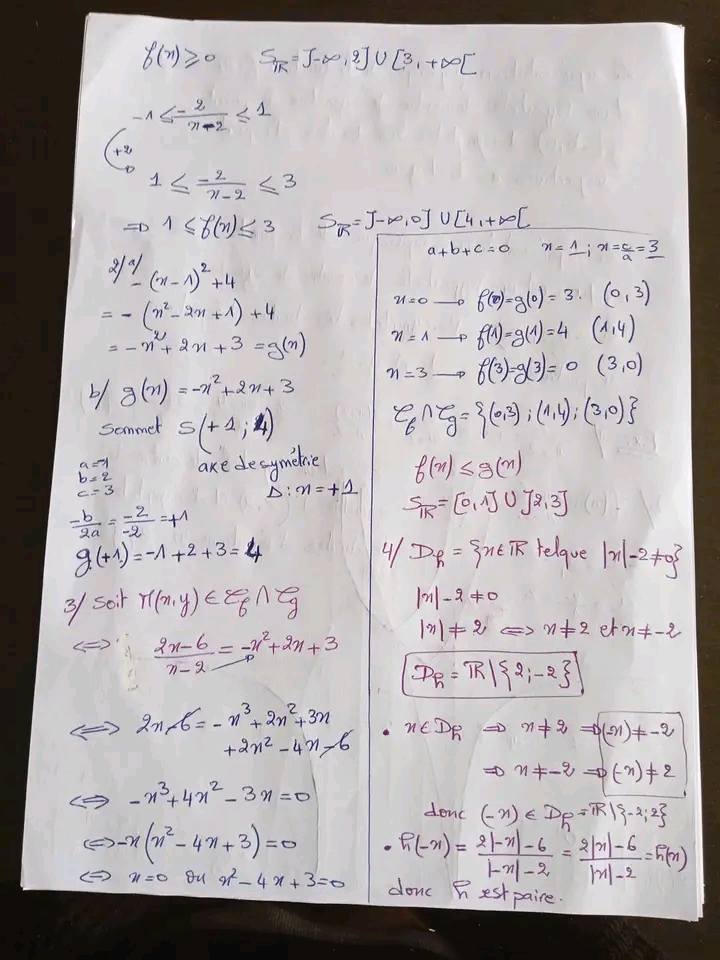 f(x) ⩾ 0 S_ℝ = ]-∞, 2] ∪ [3, +∞[
-1 ≤ -2/(x-2) ≤ 1
+2
1 ≤ -2/(x-2) ≤ 3
⇒ 1 ≤ f(x) ≤ 3 S_ℝ = ]-∞, 0] ∪ [4, +∞[
2/ a/ -(x-1)² + 4
= -(x² - 2x + 1) + 4
= -x² + 2x + 3 = g(x)
b/ g(x) = -x² + 2x + 3
Sommet S(+1 ; 4)
a=-1
b=2
c=3
axe de symétrie
Δ : x = +1
-b/2a = -2/-2 = +1
g(+1) = -1 + 2 + 3 = 4
3/ Soit M(x,y) ∈ 𝒞f ∩ 𝒞g
⇔ (2x-6)/(x-2) = -x² + 2x + 3
⇔ 2x - 6 = -x³ + 2x² + 3x
+ 2x² - 4x - 6
⇔ -x³ + 4x² - 3x = 0
⇔ -x(x² - 4x + 3) = 0
⇔ x = 0 ou x² - 4x + 3 = 0
a+b+c = 0 x = 1 ; x = c/a = 3
x = 0 → f(0) = g(0) = 3. (0,3)
x = 1 → f(1) = g(1) = 4 (1,4)
x = 3 → f(3) = g(3) = 0 (3,0)
𝒞f ∩ 𝒞g = {(0,3) ; (1,4) ; (3,0)}
f(x) ≤ g(x)
S_ℝ = [0,1] ∪ ]2,3]
4/ Dh = {x ∈ ℝ telque |x| - 2 ≠ 0}
|x| - 2 ≠ 0
|x| ≠ 2 ⇔ x ≠ 2 et x ≠ -2
Dh = ℝ \ {2 ; -2}
• x ∈ Dh ⇒ x ≠ 2 ⇒ (-x) ≠ -2
⇒ x ≠ -2 ⇒ (-x) ≠ 2
donc (-x) ∈ Dh = ℝ \ {-2 ; 2}
• h(-x) = (2|-x| - 6)/(|-x| - 2) = (2|x| - 6)/(|x| - 2) = h(x)
donc h est paire.